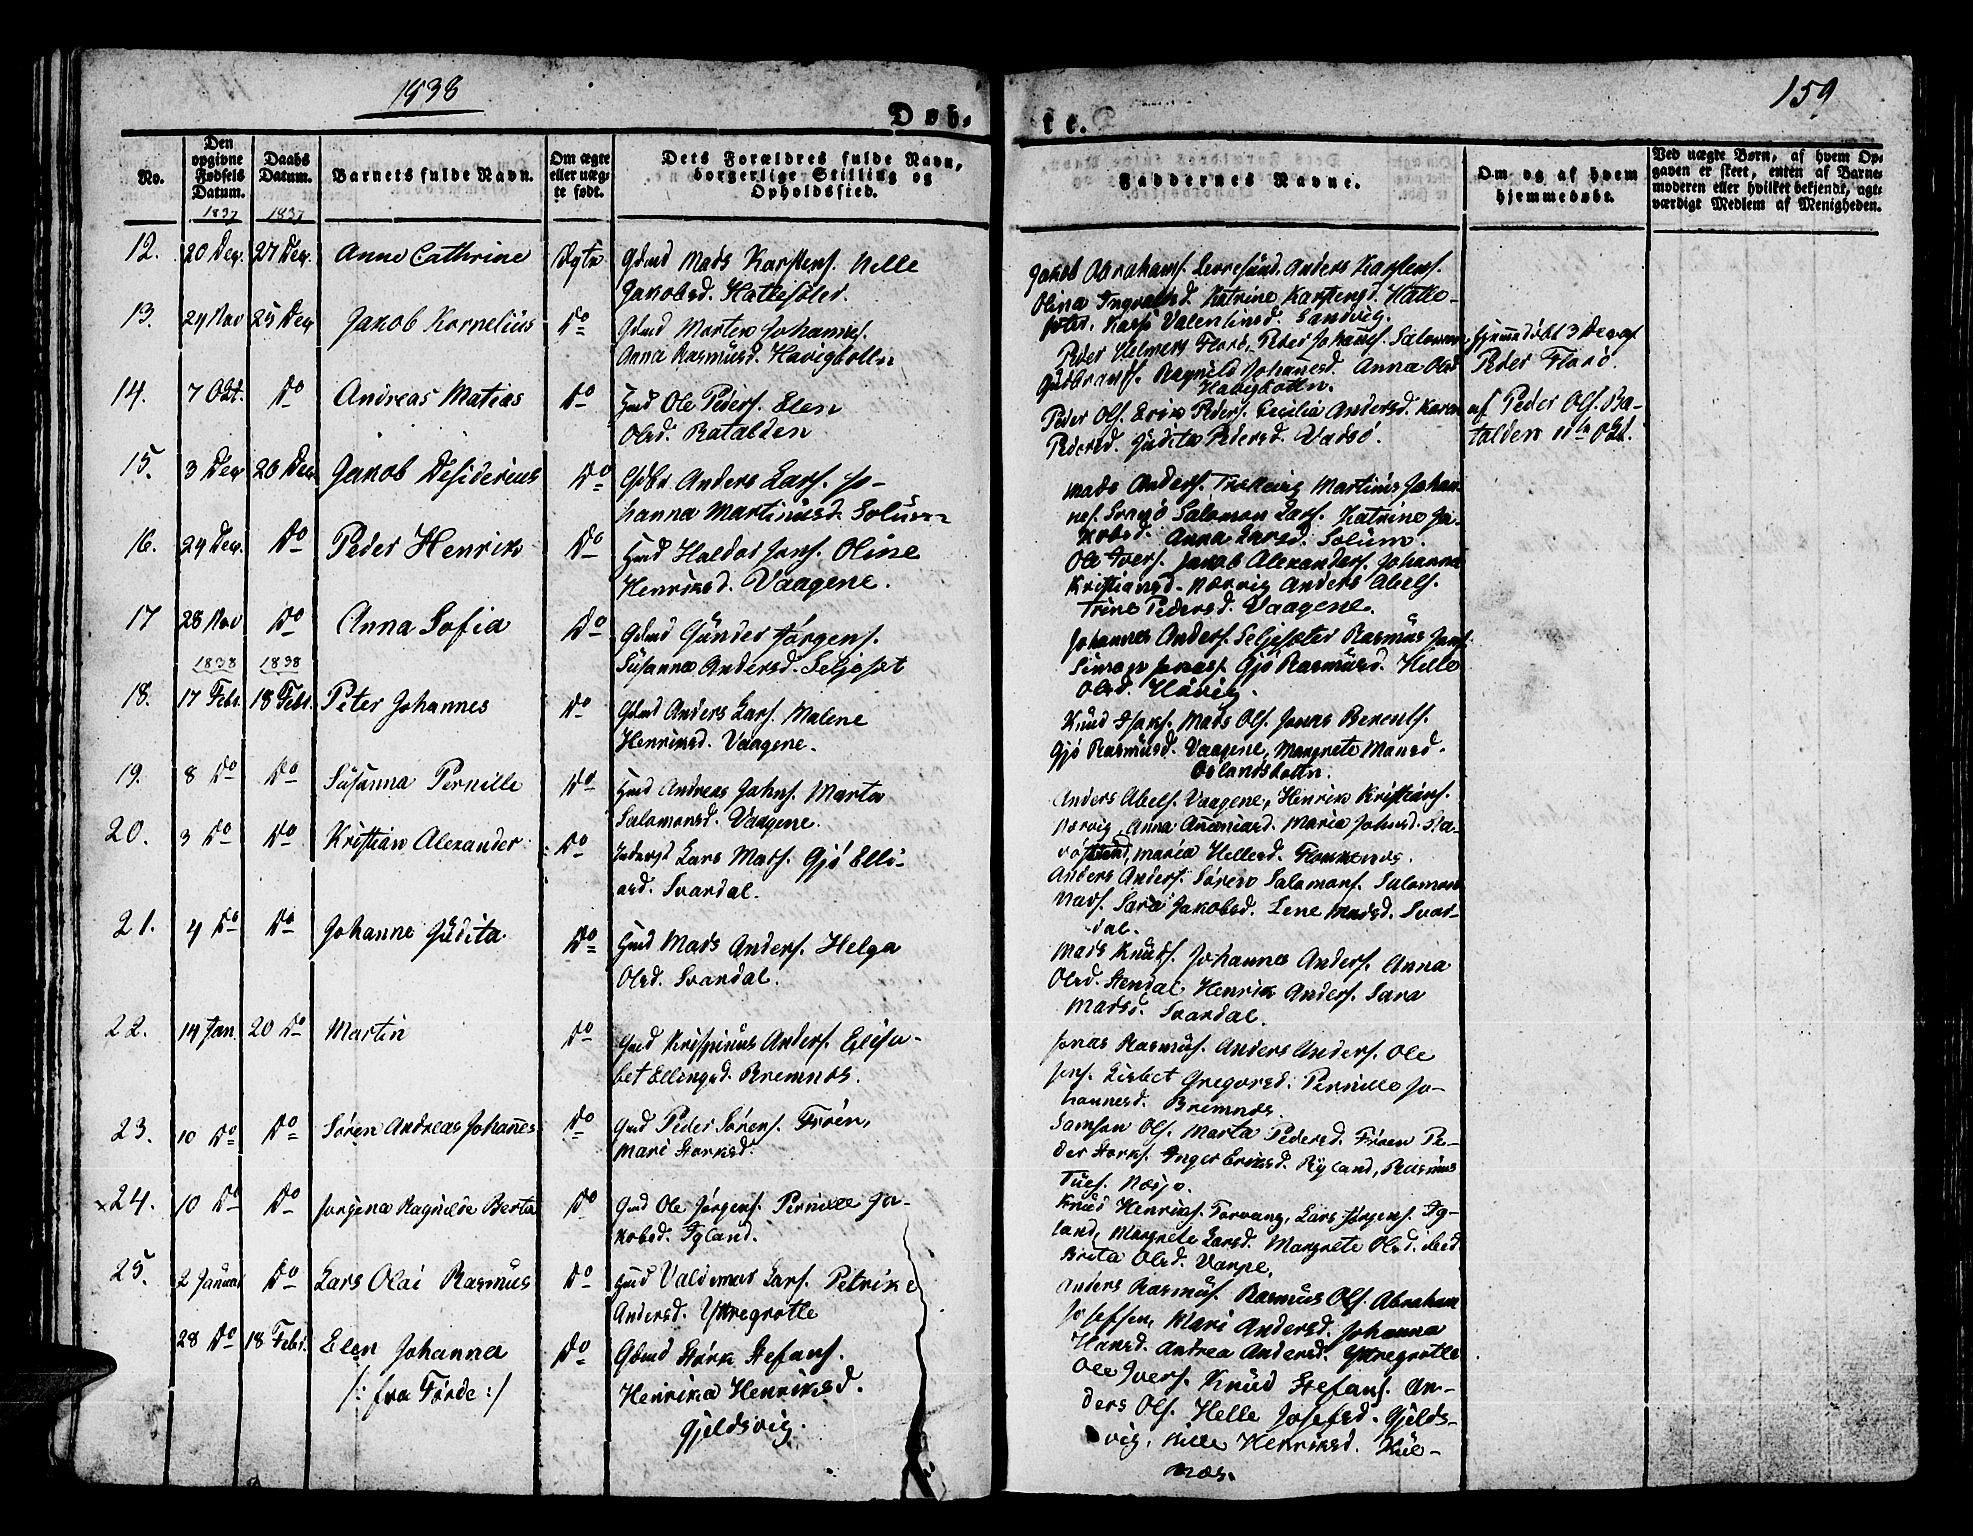 1838
159
Døb-
te.
No.
Den opgivne Fødsels Datum.
Daabs Datum.
Barnets fulde Navn.
Om ægte eller uægte født.
Dets Forældres fulde Navn, borgerlige Stilling og Opholdssted.
Faddernes Navne.
Om og af hvem hjemmedøbt.
Ved uægte Børn, af hvem Opgaven er skeet, enten af Barnemoderen eller hvilket bekjendt, agtværdigt Medlem af Menigheden.
1837 1837
12. 20 Dec. 27 Dec. Anne Cathrine Ægte Gdmd Mads Karstens. Helle
Jakobsd. Hattesøter.
Jakob Abrahams. Anders Karstens.
Olina Katrine Karstensd. Hatte-
søter, Valentinsd. Sandvig.
13. 29 Nov 25 Dec Jakob Kornelius Do Gdmd Morten Johannes.
Anna Rasmusd. Havigbotten
Peder Helmers Florø, Peder Johannes. Salomon
Ragnild Johanesd. Anna Olsd
Havigbotten.
Hjemmedøbt 3 Dec af
Peder Florø.
14. 7 Okt. Do Andreas Matias Do Hmd Ole Peders. Elen
Olsd. Batalden
Peder Ols. Erik Peders. Cecilia Andersd. Karen
Pedersd. Judita Pedersd. Vadsø.
af Peder Ols. Ba-
talden 11te Okt.
15. 3 Dec 26 Dec Jakob Desiderius Do Anders Lars. Jo-
hanna Martinusd. Solum
Mads Anders. Martinus Johan
nes. Svanø Salomon Lars. Katrine Ja-
kobsd. Anna Larsd. Solum.
16. 29 Dec. Do Peder Henrik Do Hmd Haldor Jons. Oline
Henriksd. Vaagene.
Ole Ivers. Jakob Alexanders. Johanna
Kristiansd. Nærvig Anders Abels.
Trine Pedersd. Vaagene.
17 28 Nov Do Anna Sofia Do Gdmd Gunder Jørgens.
Susanna Andersd. Seljeset
Johannes Anders. Seljesæter Rasmus Jons.
Jonas. Gjø Rasmusd. Helle
Olsd. Høivig.
1838 1838
18. 17 Febr. 18 Febr. Peter Johannes Do Gdmd Anders Lars. Malene
Henriksd. Vaagene.
Knud Isaks. Mads Ols. Jonas Berents.
Gjø Rasmusd. Vaagene, Margrete Monsd.
19. 8 Do Do Susanna Pernille Do Hmd Andreas Johns. Marta
Salamonsd. Vaagene.
Anders Abels. Vaagene, Henrik Kristians.
Nærvig, Anna Ananiasd. Maria Johnsd.
Maria Hellesd.
20. 3 Do Do Kristian Alexander Do Lars Mads. Gjø Elli-
asd. Svardal.
Anders Anders. Søren Salamons. Salomon
Mads. Sara Jakobsd. Lene Madsd. Svar-
dal.
21. 4 Do Do Johanne Judita Do Hmd Mads Anders. Helga
Olsd. Svardal.
Mads Knuds. Johannes Anders. Anna
Olsd. Stendal, Henrik Anders. Sara
Madsd. Svardal.
22. 14 Jan. 20 Do Martin Do Gmd Krispinus Anders. Elisa-
bet Ellingsd. Bremnes.
Jonas Rasmus. Anders Anders. Ole
Jens. Lisbet Gregorsd. Pernille Jo-
hannesd. Bremnes.
23. 10 Do Do Søren Andreas Johanes Do Gmd Peder Sørens. Frøen,
Mari Storksd.
Samson Ols. Marta Pedersd. Frøen Pe-
der Storks. Inger Eriksd. Ryland, Rasmus
24. 10 Do Do Jorgina Ragnilde Berta Do Gmd Ole Jørgens. Pernille Ja-
kobsd. Igland.
Knud Henriks. Torvang, Lars Jørgens. Ig-
land, Margrete Larsd. Margrete Olsd. ibid.
Brita Olsd. Varpe.
25. 2 Januar Do Lars Olai Rasmus Do Hmd Valdemar Lars. Petrike
Andersd. Yttregrotle
Anders Rasmus. Rasmus Ols. Abraham
Josefsen, Mari Andersd. Johanna
Hansd. Andrea Andersd. Yttregrotle
28 Do 18 Febr. Elen Johanna Do Gdmd Størk Stefans.
/: fra Førde :/ Henrika Henriksd.
Gjeldsvig.
Ole Ivers. Knud Stefans. An-
ders Ols. Helle Josefsd. Gjelds-
vig, Helle Henriksd.